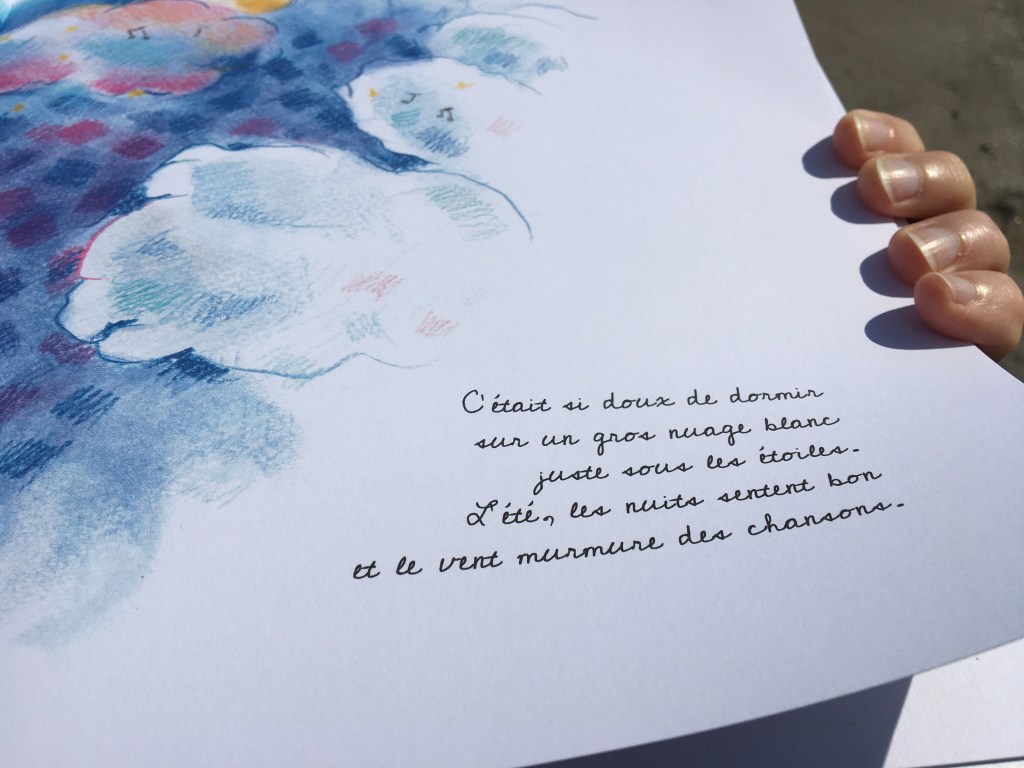 C'était si doux de dormir
sur un gros nuage blanc
juste sous les étoiles.
L'été, les nuits sentent bon
et le vent murmure des chansons.